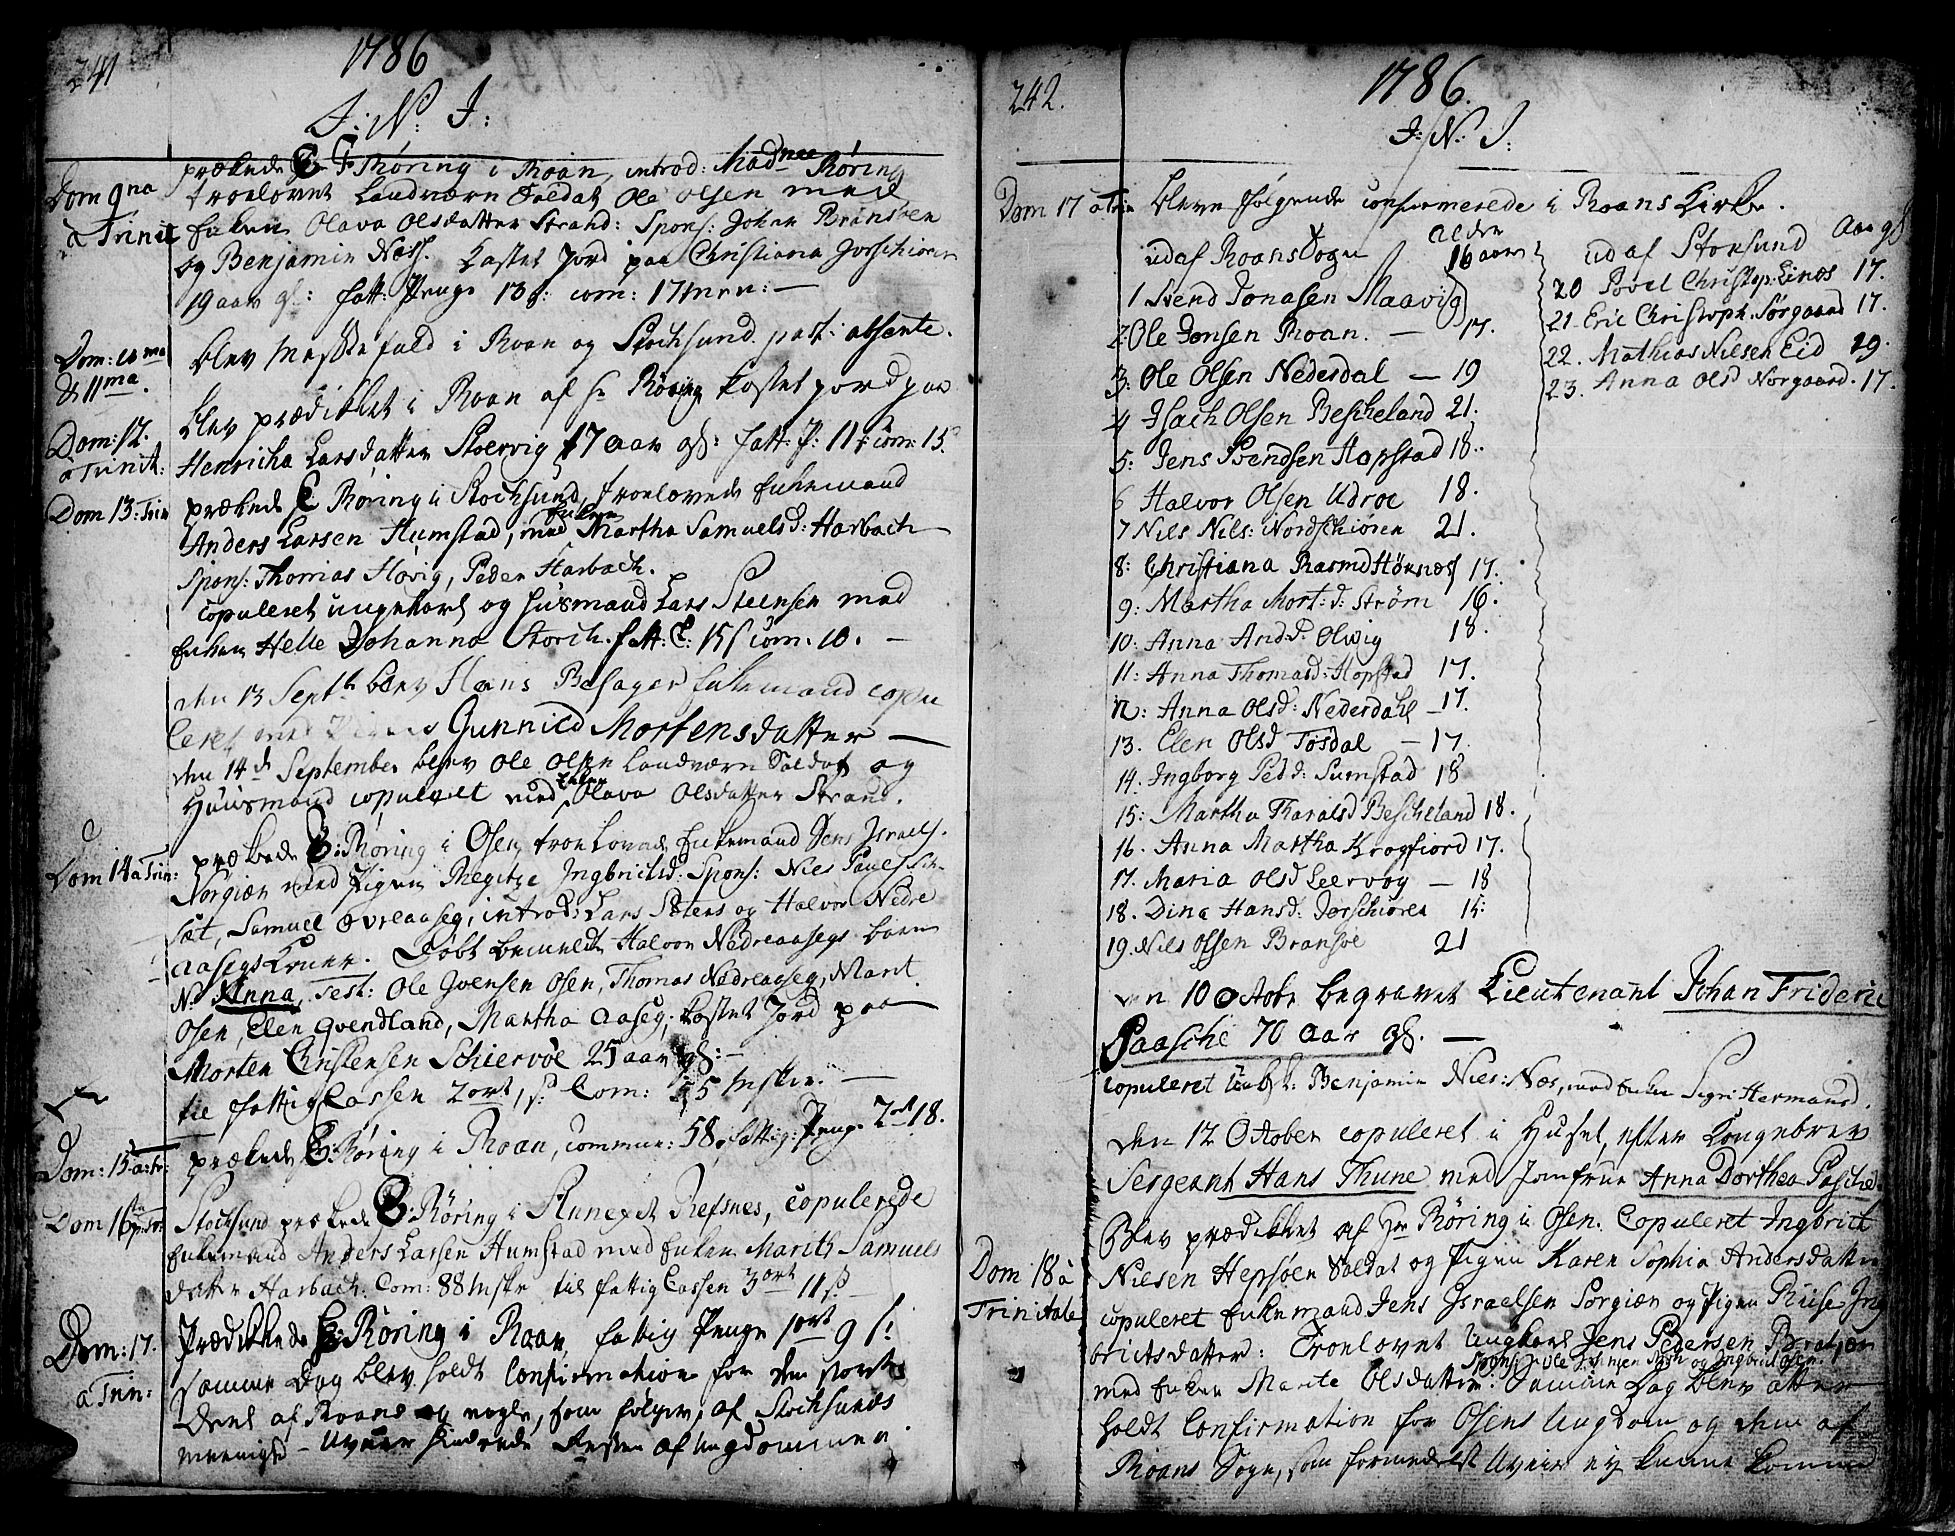 241
1786
J: N: J:
Dom 9na
a Trinit
prækede F Røring i Roan, introd: Mad Røring
troelovet Landværn Soldat Ole Olsen med
Enken Olava Olsdatter Strand: Spons: Johan Brandsøen
og Benjamin Næss. Kastet Jord paa Christiana Jørschioren
19 aar gl: fatt: Penge 13 s: com: 17 men:
Dom: 10ma
& 11ma.
blev Messefald i Roan og Stochsund past: absente.
Dom: 12.
a Trinit:
blev prædikket i Roan af Hr Røring Kastet jord paa
Henricha Larsdatter Stoervig 17 aar gl: fatt: P: 11 s: com: 15.
Dom 13: Trin
prækede Røring i Stochsund, troelovede Enkemand
Anders Larsen Humstad, med Enken Martha Samuelsd: Harbach
Spons: Thomas Hovig, Peder Harbach.
copuleret ungekarl og Huusmand Lars Steensen med
Enken Helle Johanna Storch. fatt: C: 15 s com: 10.
den 13 Septb blev Hans Besager Enkemand copu
leret med Pigen Gunnild Mortensdatter
den 14d September blev Ole Olsen Landværn Soldat og
Huusmand copuleret med Enken Olava Olsdatter Strand.
Dom 14 a Trin:
prækede Røring i Osen, troelovede Enkemand Jens Israels.
Sørgiær med Pigen Megitze Ingbricts: Spons: Niels Paulsen
Sæt, Samuel Øvreaaseg, introd: Lars Sæters og Halvor Nedre
aasegs Koner. Døbt bemeldte Halvor Nedreaasegs barn
N. Anna, Test: Ole Joensen Osen, Thomas Nedreaaseg, Marit
Osen, Elen Qvendland, Martha Aaseg, Kastet Jord paa
Morten Christensen Schiervøe 25 aar gl:
til fattig Cassen 2 ort, s: Com: 55 Mskr.
Dom: 15 a: tr:
prækede Røring i Roan, commun: 58, fattig: Penge 2 ort 18.
Dom 16 p: tr:
Stochsund prækede Røring i Annexet Refsnes, copulerede
Enkemand Anders Larsen Humstad med Enken Marith Samuels
datter Harbach. Com: 88 Mskr til fattig Cassen 3 ort 11 s
Dom: 17.
a Trin:
Prædikkede Hr: Røring i Roan, fattig Penge 1 ort 9 s:
samme Dag blev holdt Confirmation for den største
Deel af Roans og nogle, som følger, af Stochsunds
meenighed - Uveier hindrede Resten af Ungdommen.
242.
1786.
J: N: J:
Dom 17 a Trin
bleve følgende confirmerede i Roans Kirke.
udaf Roans Sogn
Alder
16 aar
1 Svend Jonasen Maavig
2: Ole Jonsen Roan. - 17.
3: Ole Olsen Nedersdal - 19
4 Isach Olsen Bescheland 21.
5: Jens Svendsen Hopstad 18.
6 Halvor Olsen Udroe 18.
7 Nils Nils: Nordschioren 21.
8: Christiana Rasmd Hørnæs 17.
9: Martha Mort: d: Strøm 16.
10: Anna Andd: Olwig 18.
11: Anna Thomasd: Hopstad 17.
12: Anna Olsd: Nederdahl - 17.
13. Elen Olsd Tøsdal - 17.
14. Ingborg Pedd: Sumstad 18
15: Martha Tharalsd Bescheland 18.
16. Anna Martha Krogfiord 17.
17. Maria Olsd Leervog - 18
18. Dina Hansd: Jørschioren 15:
19. Nils Olsen Bransøe 21
ud af Stoksund Aar gl
20 Povel Christop: Linæs 17.
21. Eric Christoph. Sørgaard 17.
22. Mathias Nielsen Eid 29.
23. Anna Olsd Norgaard. 17.
den 10 Octobr begravet Lieutenant Johan Frideric
Paasche 70 Aar gl.
copuleret Benjamin Niels: Næs, med Enken Sigri Hermansd.
den 12 October copuleret i Huset, efter Kongebrev
Sergeant Hans Thune med Jomfrue Anna Dorthea Pasche.
Dom 18 à
Trinitate
Blev prædikket af Hr Røring i Osen. Copuleret Ingbrict
Nielsen Hepsøen Soldat og Pigen Karen Sophia Andersdatter
copuleret Enkemand Jens Israelsen Sørgiær og Pigen Ing
brictsdatter: Troelovet Ungkarl Jens Pedersen
med Enken Marite Olsdatter: Samme Dag blev atter
holdt Confirmation for Osens Ungdom og dem af
Roans Sogn, som formedelst Uveir ey kunne komme